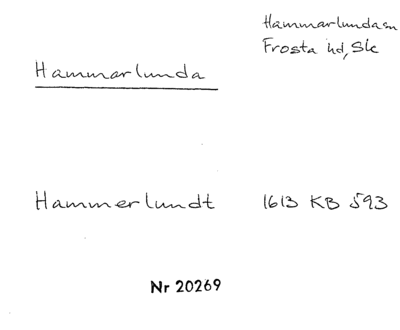 Hammarlunda sn
Frosta hd, Sk
Hammarlunda
Hammerlundt 1613 KB 593
Nr 20269